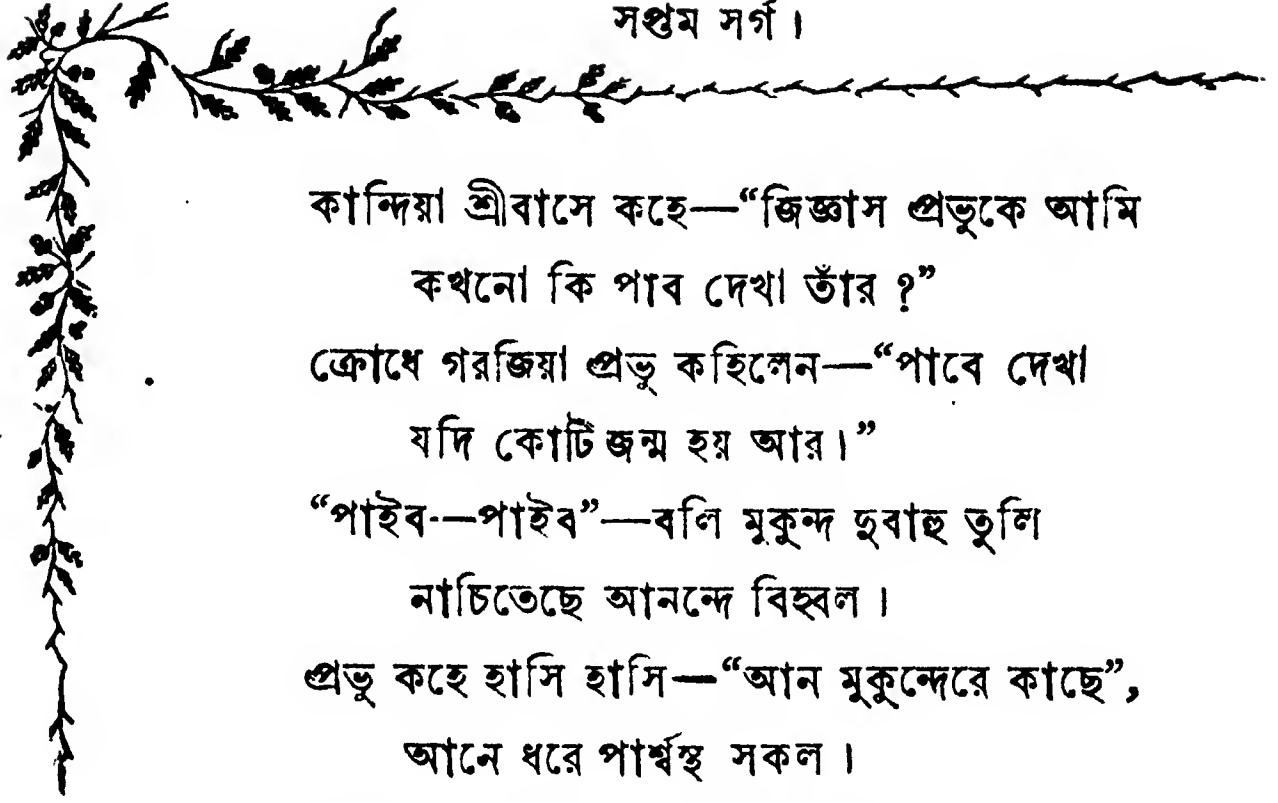 সপ্তম সর্গ।
কান্দিয়া শ্রীবাসে কহে—“জিজ্ঞাস প্রভুকে আমি
কখনো কি পাব দেখা তাঁর ?”
ক্রোধে গরজিয়া প্রভু কহিলেন—“পাবে দেখা
যদি কোটি জন্ম হয় আর।”
“পাইব—পাইব”—বলি মুকুন্দ দুবাহু তুলি
নাচিতেছে আনন্দে বিহ্বল।
প্রভু কহে হাসি হাসি—“আন মুকুন্দেরে কাছে”,
আনে ধরে পার্শ্বস্থ সকল।